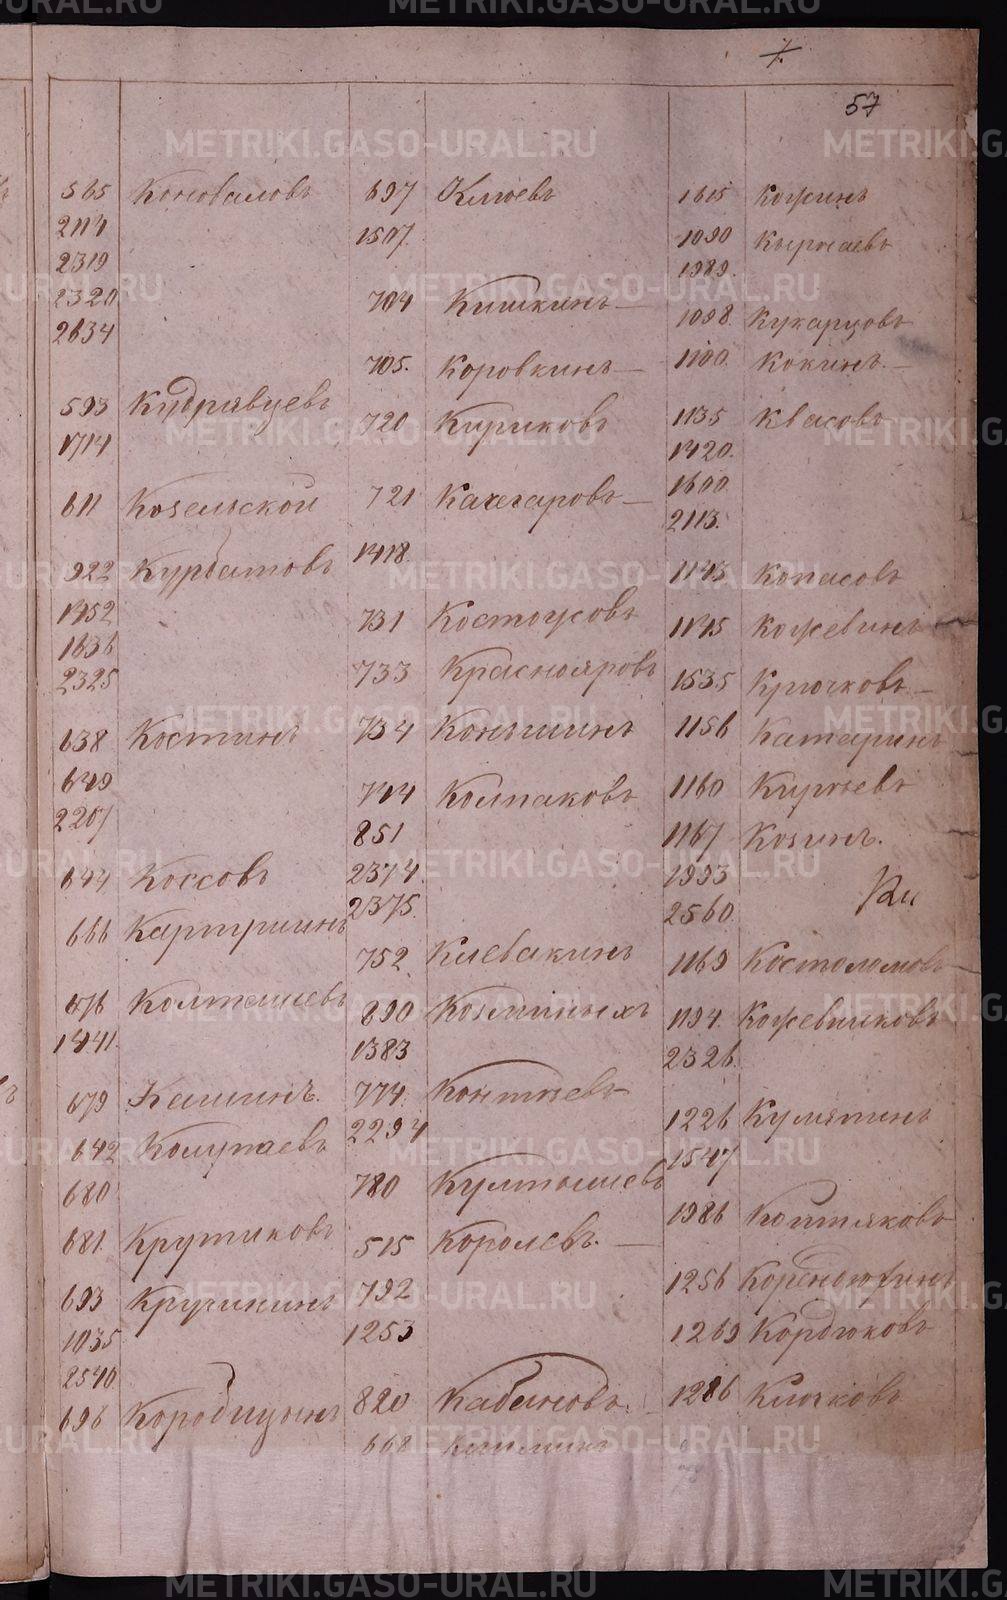 57
565 Коноваловъ
2114
2319
2320
2634
593 Кудрявцевъ
1714
611 Козельской
922 Курбатовъ
1452
1636
2325
638 Костинъ
649
2207
644 Коссовъ
666
676 Колташевъ
1441.
679 Кашинъ.
642 Колупаевъ
680
681. Крутиковъ
693 Кручининъ
1035
2540
696 Коробицынъ
697 Клюевъ
1507.
704 Кишкинъ
705. Коровкинъ
720 Кириковъ
721 Качегаровъ
1418.
731 Костоусовъ
733 Краснояровъ
734 Коньшинъ
744 Колпаковъ
851
2374
2375.
752 Клевакинъ
890 Козминыхъ
1383
774. Контѣевъ
2294
780 Култышевъ
515 Королевъ.
792
1253
820 Кабановъ.
668
1615 Кожинъ
1090 Кырчаевъ
1989.
1098. Кукарцовъ
1100. Кокинъ.
1135 Квасовъ
1420.
1600.
2113.
1143 Копасовъ
1145 Кожевинъ
1535 Крючковъ
1156 Катаринъ
1160
1167 Козинъ.
1993
2560.
1169 Костоломовъ
1194. Кожевниковъ
2326.
1226 Кумятинъ
1547
1986 Коптяковъ
1256
1269 Кордюковъ
1286 Клочковъ
METRIKI.GASO-URAL.RU